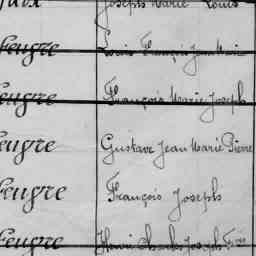 Joseph Marie Louis
Feugre Louis François Jean Marie
Feugre François Marie Joseph
Feugre Gustave Jean Marie Pierre
Feugre François Joseph
Feugre Henri Charles Joseph